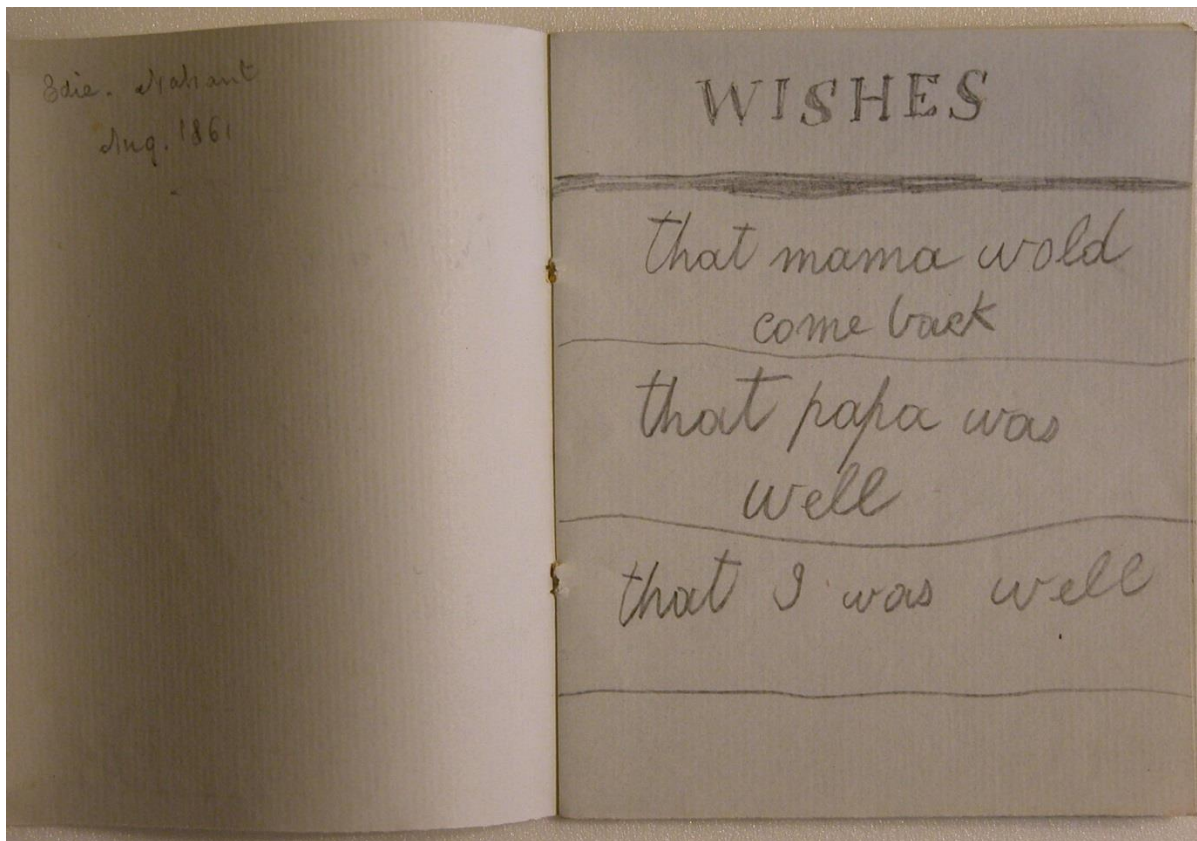 Edie. Nahant
Aug. 1861
WISHES
that mama wold
come back
that papa was
well
that I was well